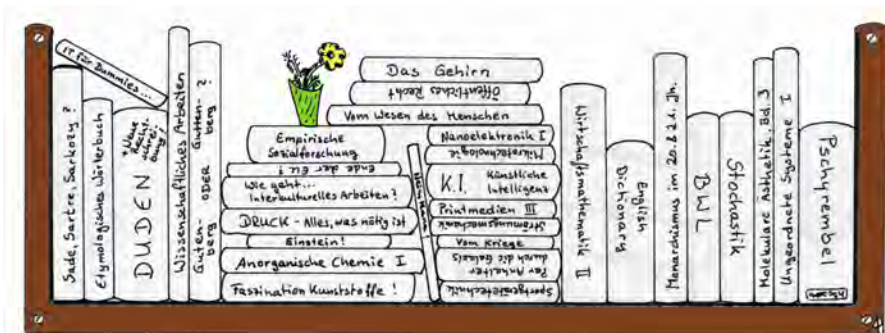 IT für Dummies...
Sade, Sartre, Sarkosy?
Etymologisches Wörterbuch
DUDEN
*Neue
Recht-
schrei-
bung!
Wissenschaftliches Arbeiten
Guttenberg ODER Guttenberg?
Empirische
Sozialforschung
Ende der EU?
Wie geht...
Interkulturelles Arbeiten?
DRUCK - Alles, was nötig ist
Einstein!
Anorganische Chemie I
Faszination Kunststoffe!
Das Gehirn
Öffentliches Recht
Vom Wesen des Menschen
Nanoelektronik I
Mikrotechnologie
K.I. Künstliche
Intelligenz
Printmedien III
Strömungsmechanik
Vom Kriege
Per Anhalter
durch die Galaxis
Sportgerätetechnik
Wirtschaftsmathematik II
English
Dictionary
Monarchismus im 20. & 21. Jh.
BWL
Stochastik
Molekulare Ästhetik, Bd. 3
Ungeordnete Systeme I
Pschyrembel